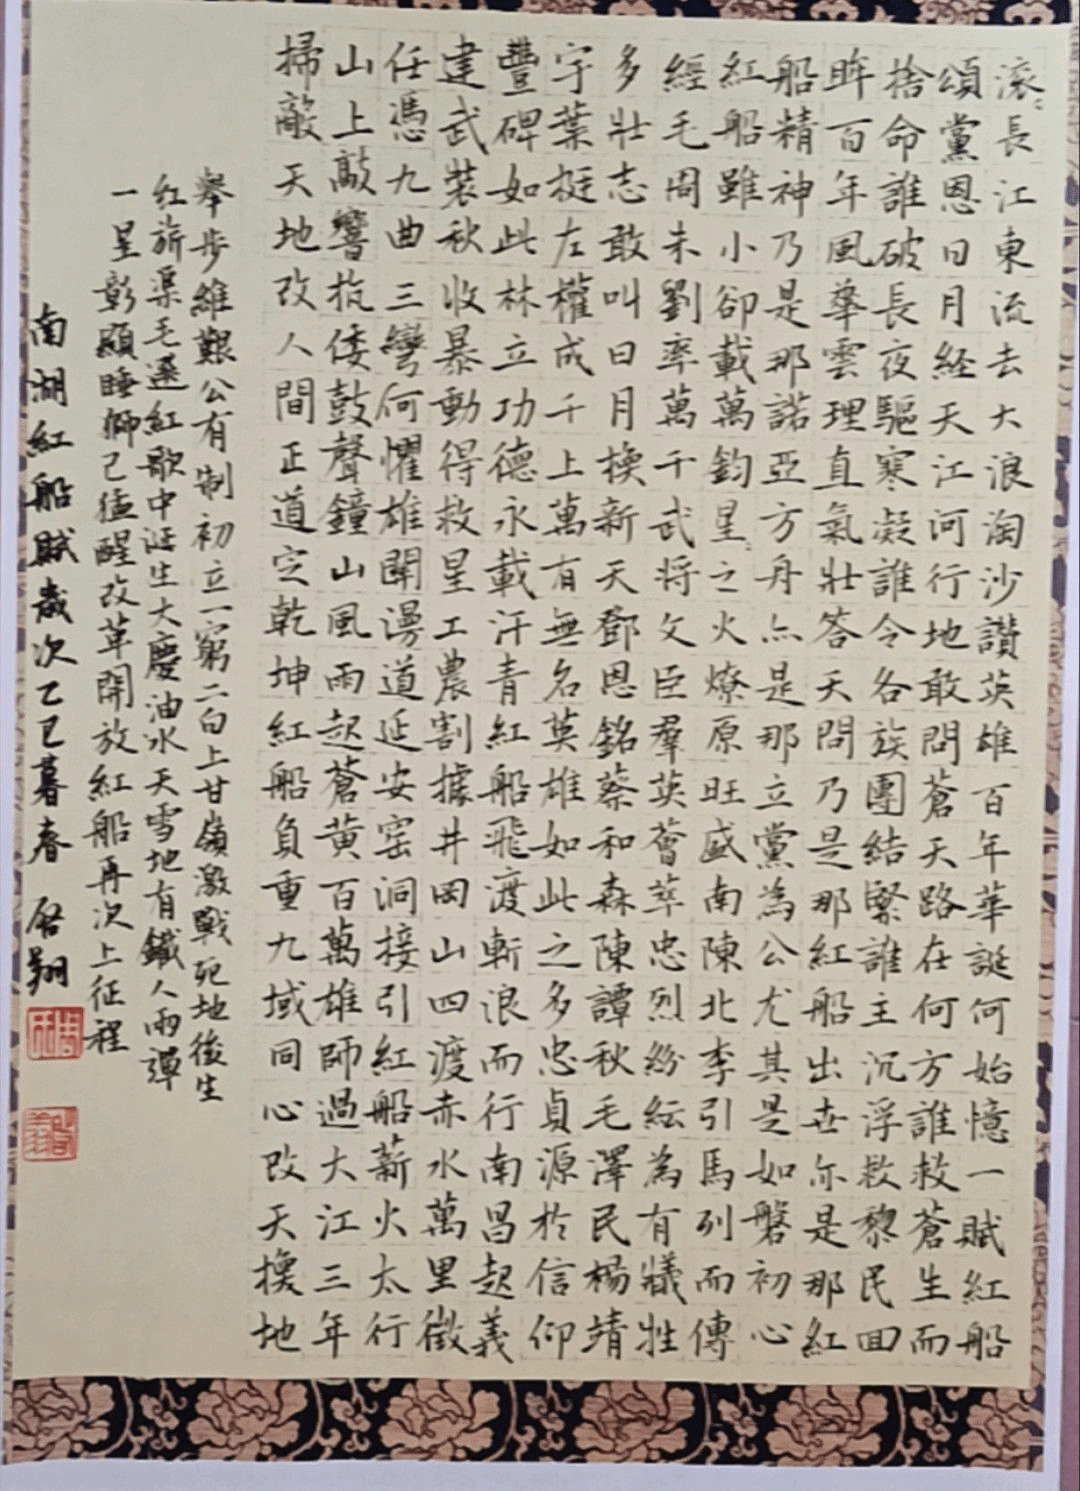 滚〻長江東流去大浪淘沙讚英雄百年華誕何始憶一賦紅船
頌黨恩日月経天江河行地敢問蒼天路在何方誰救蒼生而
捨命誰破長夜驅寒凝誰令各族團結緊誰主沉浮救黎民回
眸百年風華雲理直氣壯答天問乃是那紅船出世亦是那紅
船精神乃是那諾亞方舟亦是那立黨為公尤其是如磐初心
紅船雖小卻載萬鈞星〻之火燎原旺盛南陳北李引馬列而傳
經毛周朱劉率萬千武將文臣羣英薈萃忠烈紛紜為有犧牲
多壯志敢叫日月換新天鄧恩銘蔡和森陳譚秋毛澤民楊靖
宇葉挺左權成千上萬有無名英雄如此之多忠貞源於信仰
豐碑如此林立功德永載汗青紅船飛渡斬浪而行南昌起義
建武裝秋收暴動得救星工農割據井岡山四渡赤水萬里徵
任憑九曲三彎何懼雄關漫道延安窑洞接引紅船薪火太行
山上敲響抗倭鼓聲鐘山風雨起蒼黄百萬雄師過大江三年
掃敵天地改人間正道定乾坤紅船負重九域同心改天換地
舉步維艱公有制初立一窮二白上甘嶺激戰死地後生
紅旂渠毛選紅歌中诞生大慶油氷天雪地有鐵人兩彈
一星彰顯睡獅已猛醒改革開放紅船再次上征程
南湖紅船賦歲次乙巳暮春 啓翔